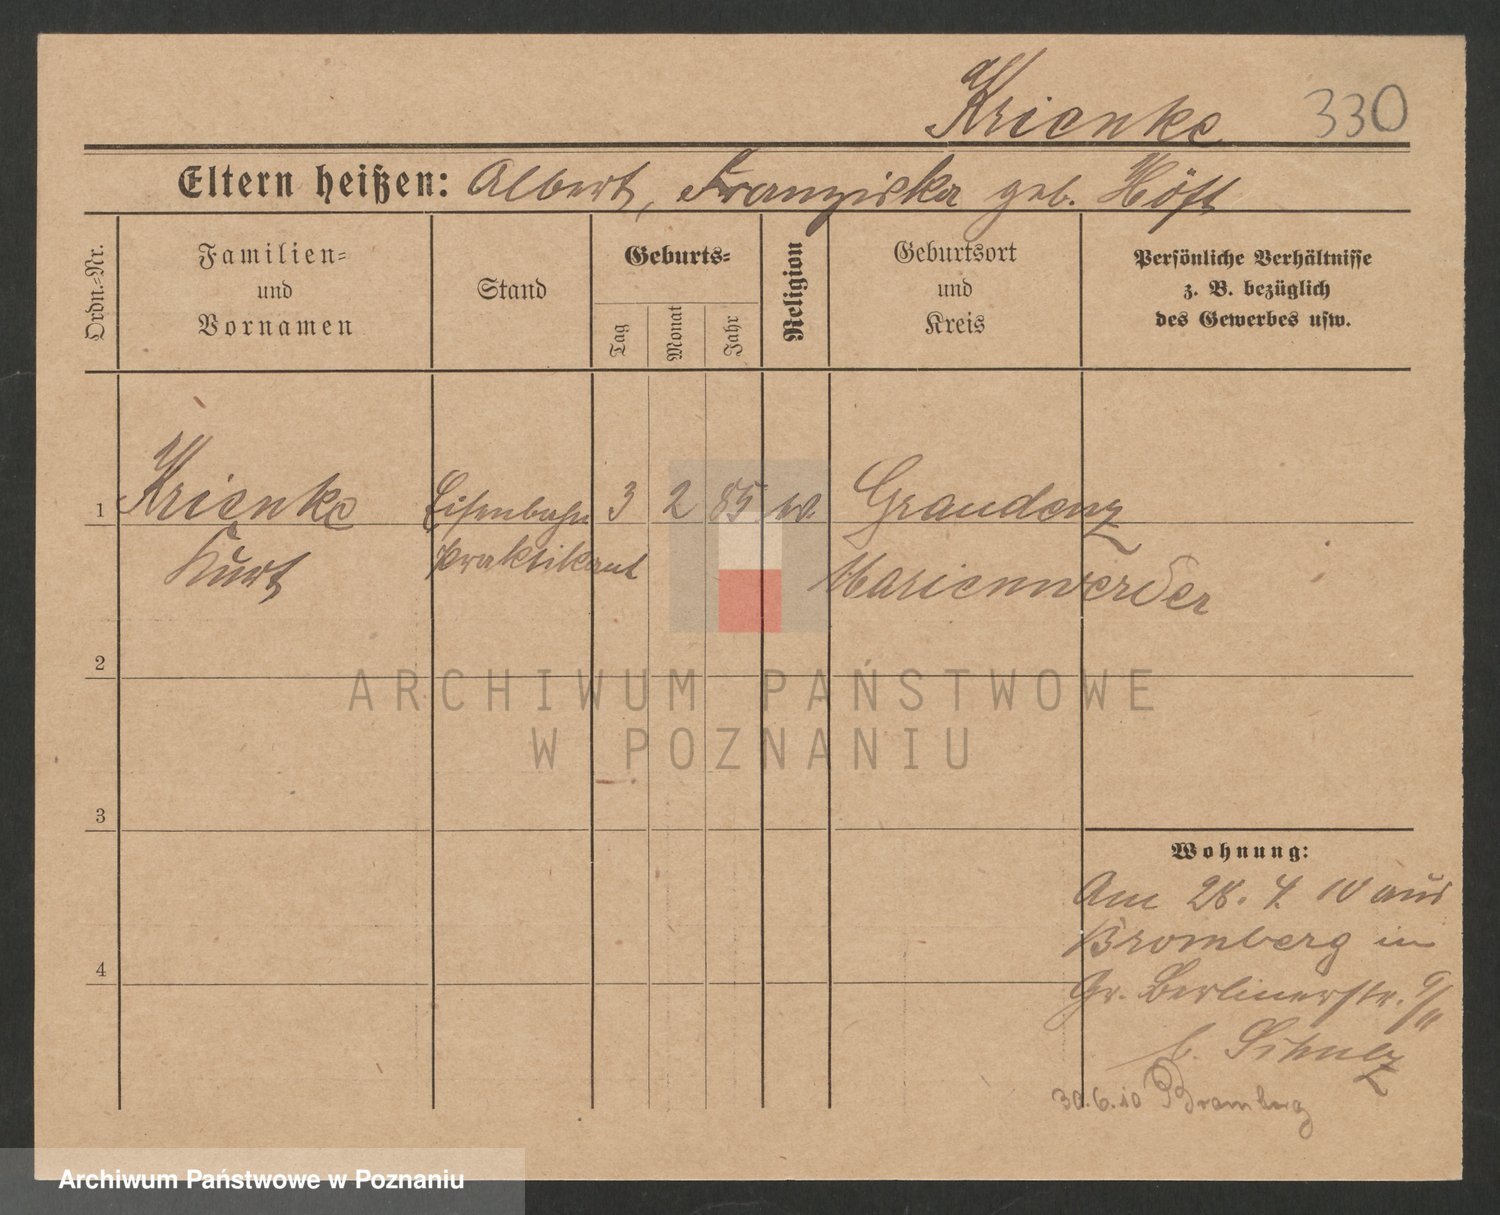 Krienke 330
Eltern heißen: Albert, Franziska geb. Höft
Ordn.-Nr.
Familien-
und
Vornamen
Stand
Geburts-
Tag
Monat
Jahr
Religion
Geburtsort
und
Kreis
Persönliche Verhältnisse
z. B. bezüglich
des Gewerbes usw.
1 Krienke Eisenbahn 3 2 85 Graudenz
Kurt praktikant Marienwerder
2
ARCHIWUM PAŃSTWOWE
W POZNANIU
3
Wohnung:
Am 28. 4. 10 aus
Bromberg in
4
Gr. Berlinerstr. 9/II
b. Schulz
30.6.10 Bromberg
Archiwum Państwowe w Poznaniu